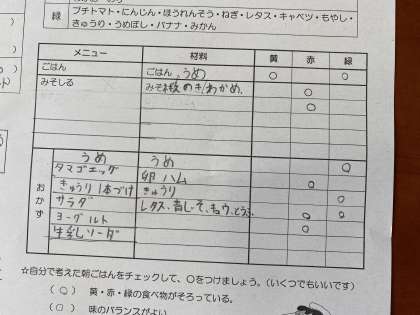 緑
プチトマト・にんじん・ほうれんそう・ねぎ・レタス・キャベツ・もやし・
きゅうり・うめぼし・バナナ・みかん
メニュー 材料 黄 赤 緑
ごはん ごはん、うめ ○ ○
みそしる ○
○
おかず
うめ うめ ○
タマゴエッグ 卵 ハム
きゅうり1本づけ きゅうり ○
サラダ レタス、
ヨーグルト ○ ○
牛乳ソーダ ○
☆自分で考えた朝ごはんをチェックして、○をつけましょう。(いくつでもいいです)
(○) 黄・赤・緑の食べ物がそろっている。
味のバランスがよい